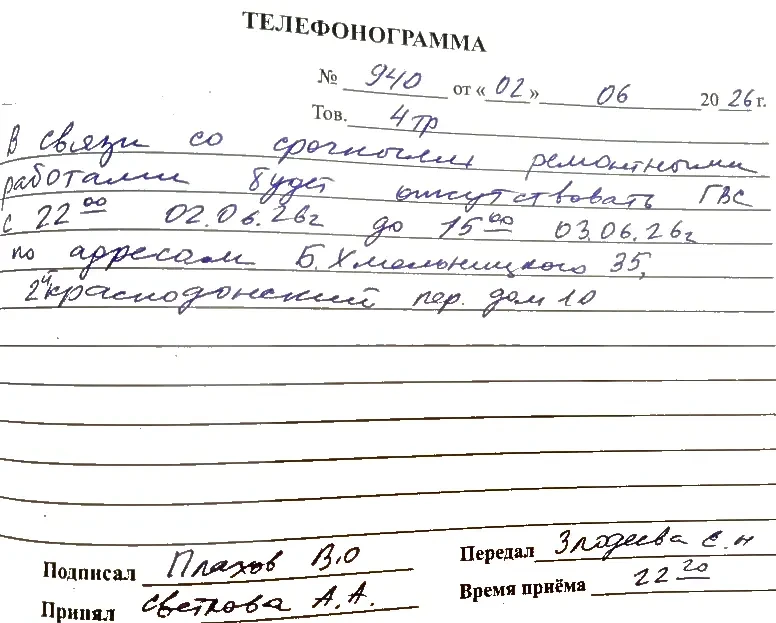 ТЕЛЕФОНОГРАММА
№ 940 от «02» 06 2026 г.
Тов. 4 тр
В связи со срочными ремонтными
работами будет отсутствовать ГВС
с 22 00 02.06.26г до 15 00 03.06.26г
по адресам Б. Хмельницкого 35,
2й Краснодонский пер. дом 10
Подписал Плахов В.О Передал Злодеева С.Н
Принял Светкова А.А. Время приёма 22 20